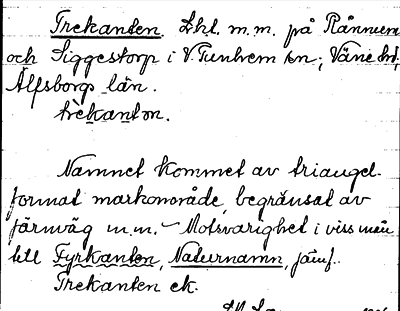 Trekanten. Lht. m.m. på Rånnum
och Siggestorp i V. Tunhem sn; Väne hd,
Älfsborgs län.
trèkanton.
Namnet kommet av triangel-
format markområde, begränsat av
järnväg m.m. – Motsvarighet i viss mån
till Fyrkanten, Naturnamn, jämf.
Trekanten ek.